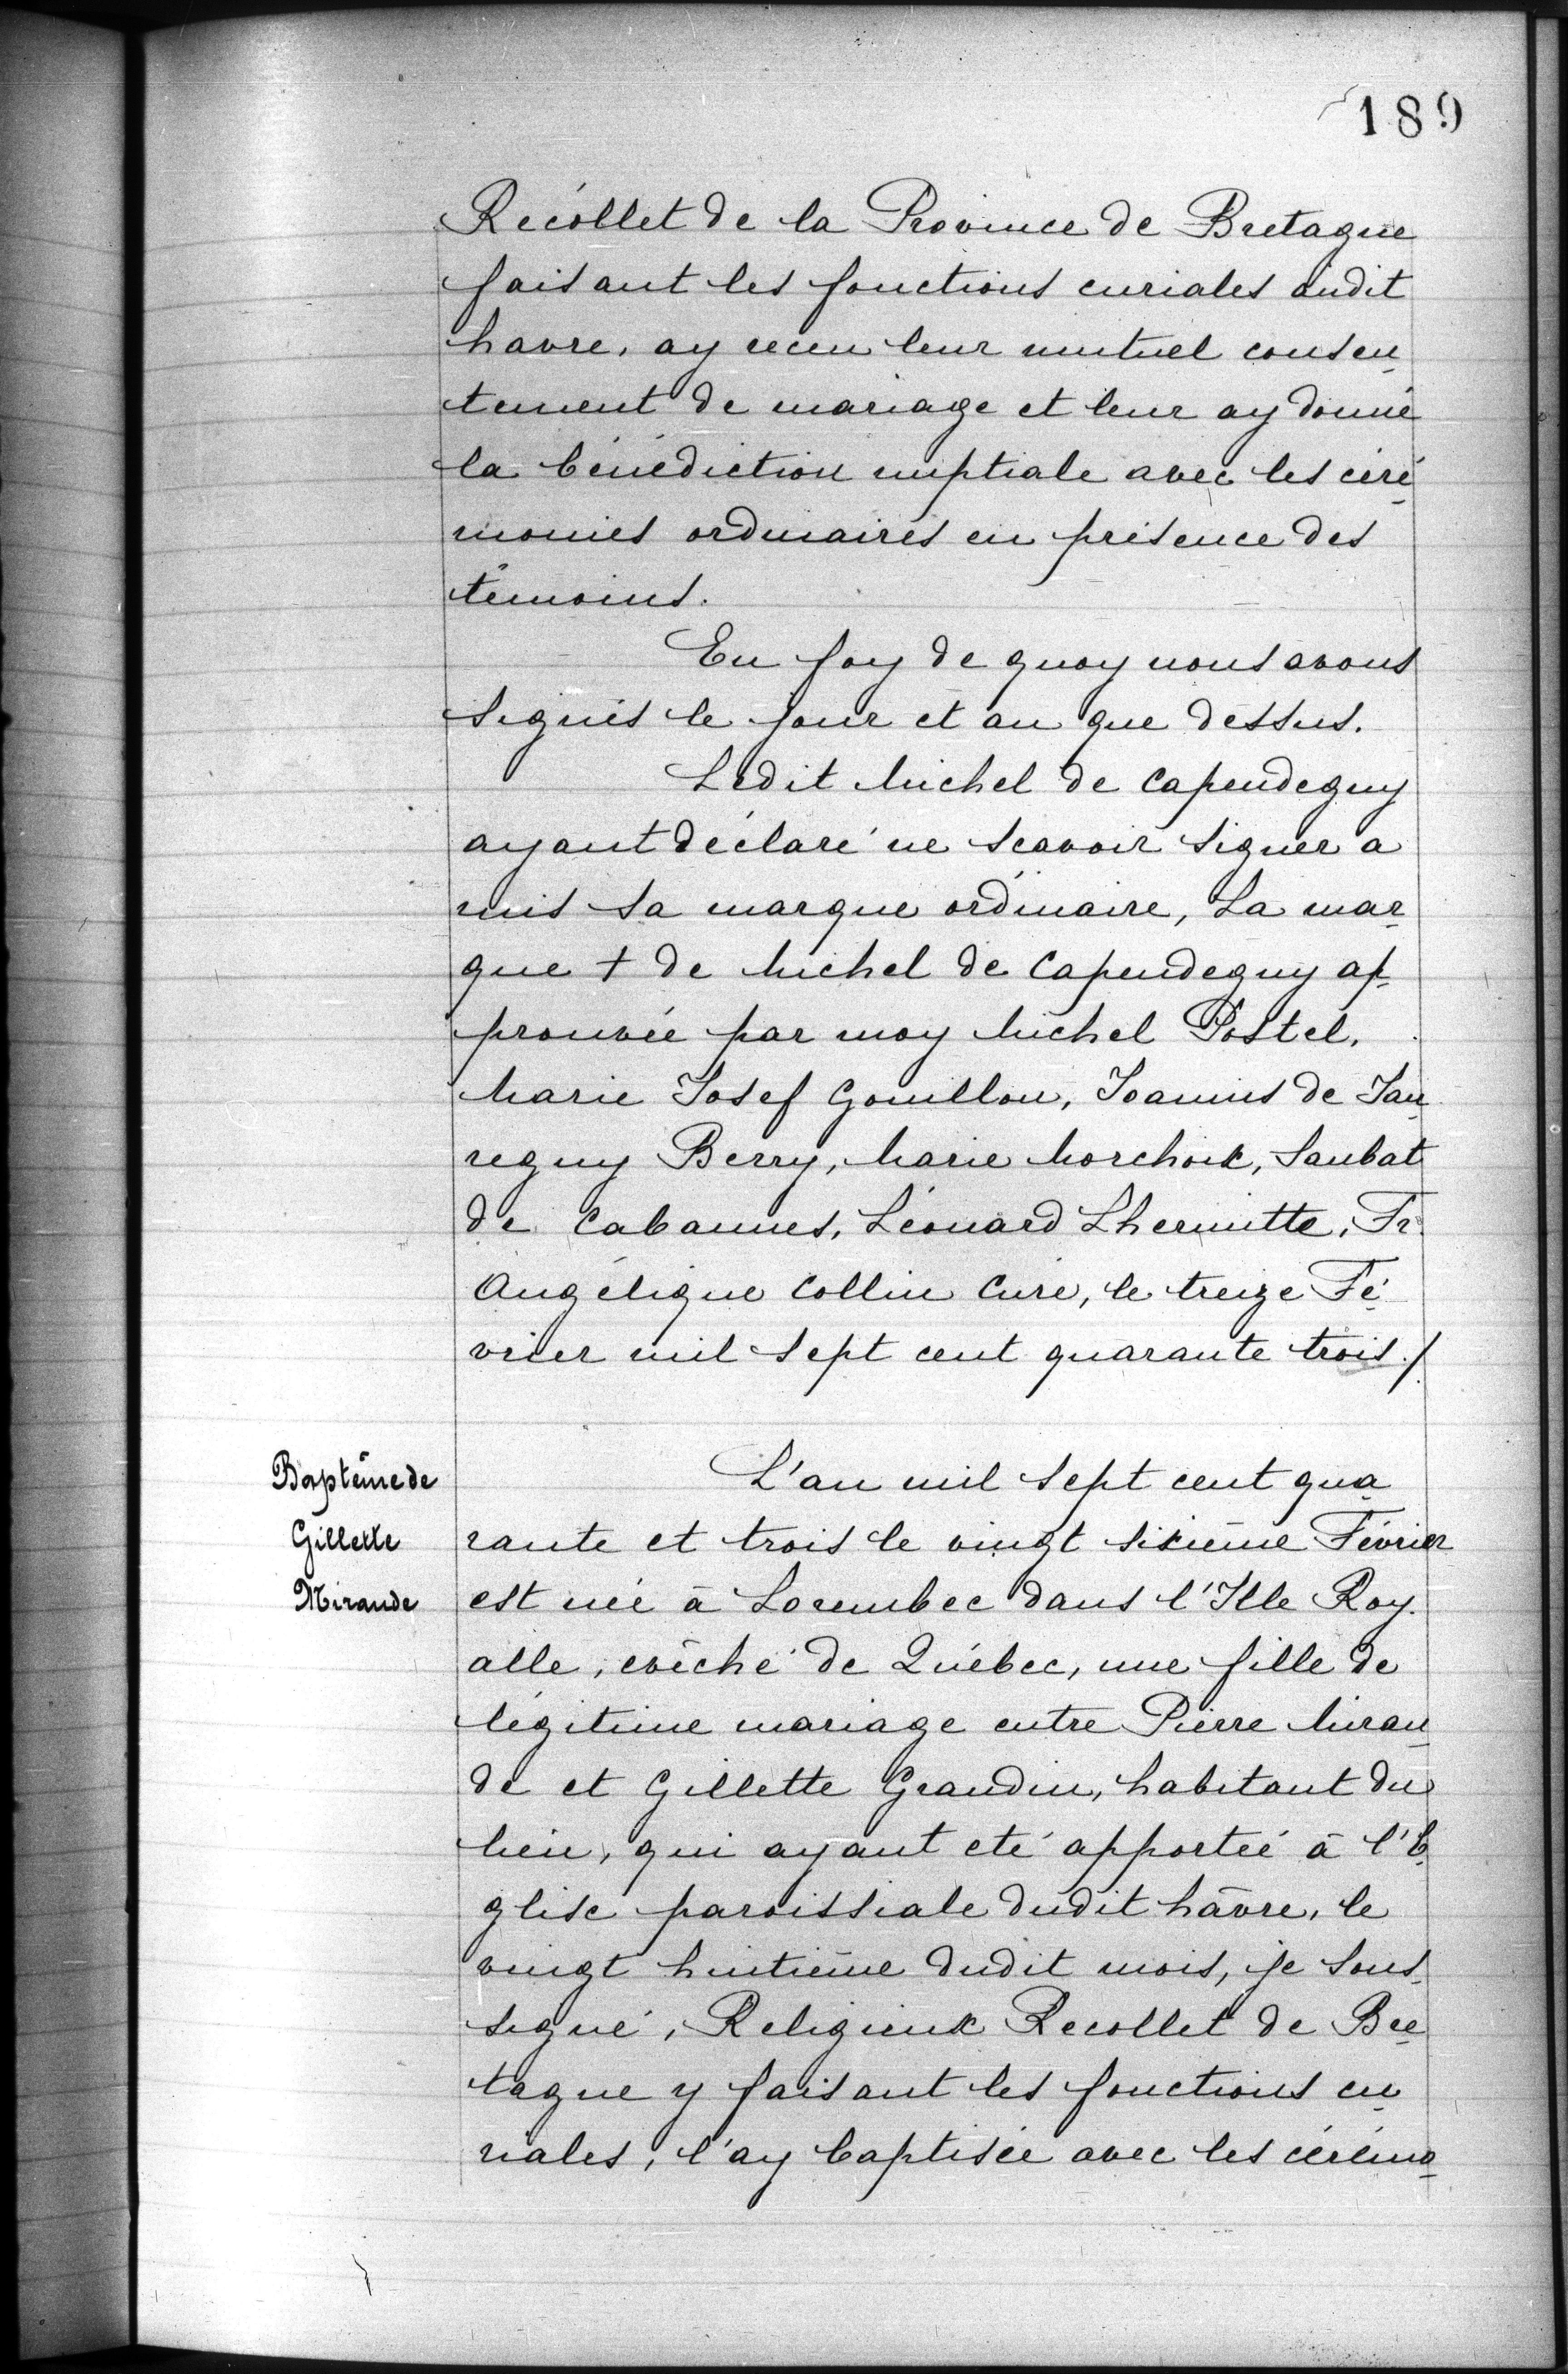 189
Recollet de la Province de Bretagne
faisant les fonctions curiales audit
havre, ay receu leur mutuel consen
tement de mariage et leur ay donné
la bénédiction nuptiale avec les céré
monies ordinaires en présence des
témoins.
En foy de quoy nous avons
signés le jour et an que dessus.
Ledit Michel de Capendeguy
ayant déclaré ne scavoir signer a
mis sa marque ordinaire, La mar
que + de Michel de Capendeguy ap
prouvée par moy Michel Postel,
Marie Josef Gouillon, Joannis de Jau
reguy Berry, Marie Morchoix, Saubat
de Cabannes, Léonard Lhermitte, Fr.
Angélique Collin Curé, le treize Fé
vrier mil sept cent quarante trois./.
Baptême de
Gillette
Mirande
L'an mil sept cent qua
rante et trois le vingt sixième Février
est née à Lorembec dans l'Ile Roy
alle, evêché de Québec, une fille de
légitime mariage entre Pierre Miran
de et Gillette Grandin, habitant du
lieu, qui ayant eté apportée à l'E
glise paroissiale dudit hâvre, le
vingt huitième dudit mois, je sous
signé, Religieux Recollet de Bre
tagne y faisant les fonctions cu
riales, l'ay baptisée avec les cérémo